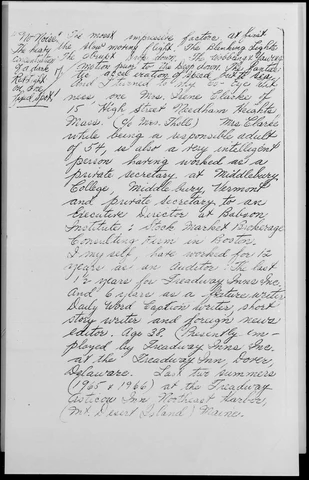 "No Noise" The most impressive factor at first
the slow moving flight. The Blinking Lights
The beauty
of a dark
Red light
on one
fixed spot!
And I turned to my Co-Eye wit
ness one Mrs. Irene Clarke,
15 High Street Needham Heights
Mass. Mrs. Clarke
while being a responsible adult
of 54, is also a very intelligent
person having worked as a
private secretary at Middlebury
College, Middlebury, Vermont
and private secretary to an
Executive Director at Babson
Institute: Stock Market Brokerage
Consulting Firm in Boston.
I myself, have worked for 12
years as an Auditor: The last
1½ years for Treadway Inns Inc.
And 6 years as a feature writer
Daily Word Caption writer, short
story writer and foreign news
editor. Age 38. Presently em-
ployed by Treadway Inns Inc.
at the Treadway Inn, Dover,
Delaware. Last two summers
(1965 & 1966) at the Treadway
Asticou Inn, Northeast Harbor,
(Mt. Desert Island) Maine.